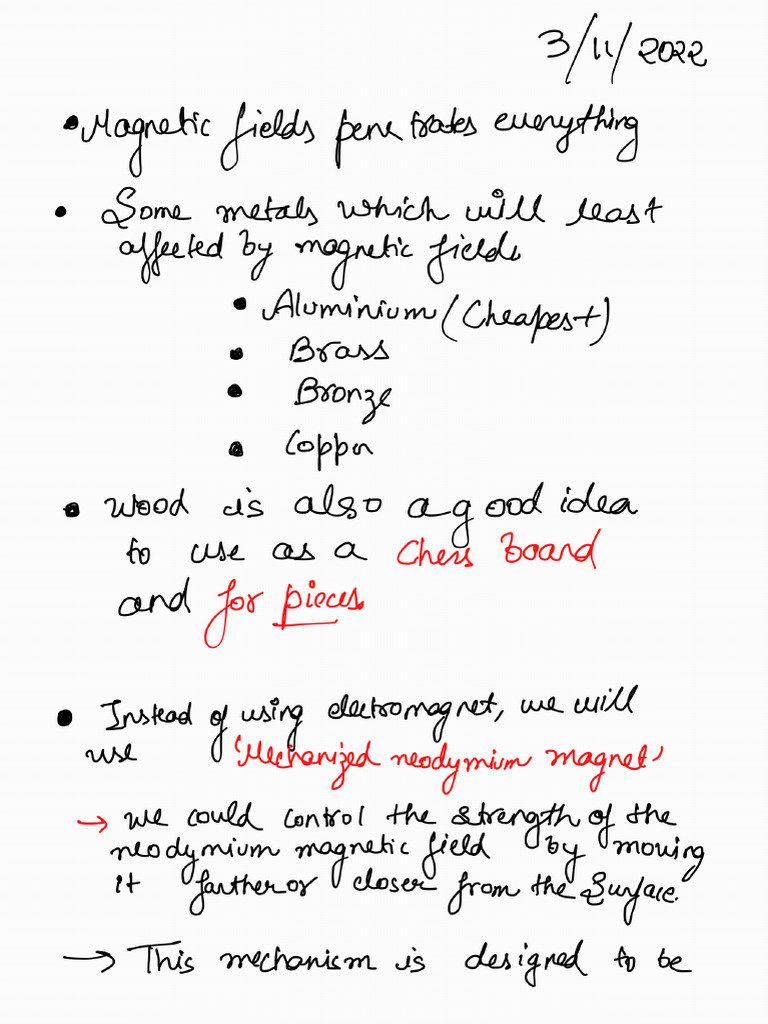 3/11/2022
• Magnetic fields penetrates everything
• Some metals which will least
affected by magnetic fields
• Aluminium (Cheapest)
• Brass
• Bronze
• Copper
• Wood is also a good idea
to use as a Chess Board
and for pieces.
• Instead of using electromagnet, we will
use 'Mechanized neodymium magnet'
→ we could control the strength of the
neodymium magnetic field by moving
it farther or closer from the Surface.
→ This mechanism is designed to be